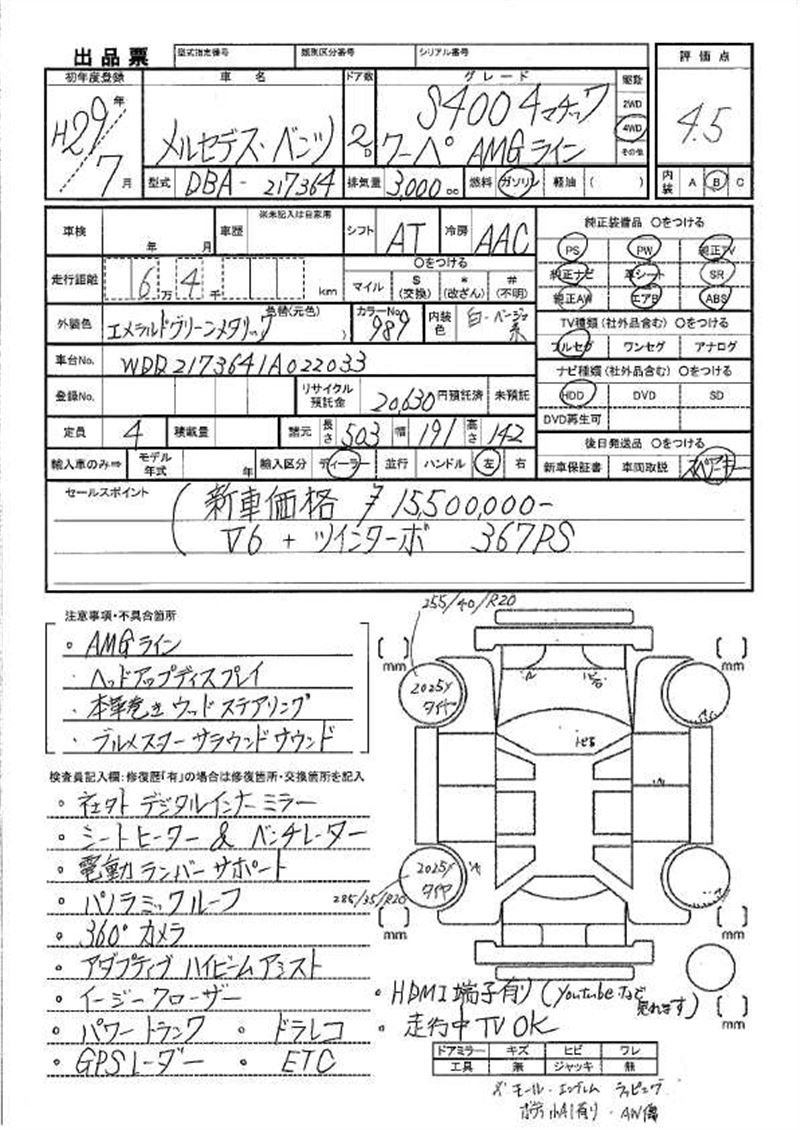 出品票 型式指定番号 類別区分番号 シリアル番号
初年度登録 車名 ドア数 グレード 駆動 評価点
H29年 7月 メルセデス・ベンツ 2D S400 4マチック 2WD 4WD その他 4.5
クーペ AMGライン
型式 DBA-217364 排気量 3,000cc 燃料 ガソリン 軽油 ( ) 内装 A B C
車検 年 月 車歴 ※未記入は自家用 シフト AT 冷房 AAC 純正装備品 ○をつける
PS PW 純正TV
走行距離 6万4千 km ○をつける マイル $(交換) *(改ざん) #(不明) 純正ナビ 革シート SR
純正AW エアB ABS
外装色 エメラルドグリーンメタリック 色替(元色) カラーNo 989 内装色 白・ベージュ系 TV種類(社外品含む) ○をつける
フルセグ ワンセグ アナログ
車台No. WDD2173641A022033 ナビ種類(社外品含む) ○をつける
登録No. リサイクル預託金 20,630円預託済 未預託 HDD DVD SD
DVD再生可
定員 4 積載量 諸元 長さ 503 幅 191 高さ 142 後日発送品 ○をつける
輸入車のみ⇒ モデル年式 年 輸入区分 ディーラー 並行 ハンドル 左 右 新車保証書 車両取説 スペアキー
セールスポイント
新車価格 ¥15,500,000-
V6 + ツインターボ 367PS
注意事項・不具合箇所
・AMGライン
・ヘッドアップディスプレイ
・本革巻きウッドステアリング
・ブルメスターサラウンドサウンド
検査員記入欄:修復歴「有」の場合は修復箇所・交換箇所を記入
・社外デジタルインナーミラー
・シートヒーター & ベンチレーター
・電動ランバーサポート
・パノラミックルーフ
・360°カメラ
・アダプティブハイビームアシスト
・イージークローザー
・パワートランク ・ドラレコ
・GPSレーダー ・ETC
255/40/R20
[ ] mm [ ] mm
2025y タイヤ
トビ石
2025y タイヤ
285/35/R20
[ ] mm [ ] mm
・HDMI端子有り(Youtubeなど見れます)
[ ] mm
・走行中TV OK
ドアミラー キズ ヒビ ワレ
工具 無 ジャッキ 無
モール・エンブレム ラッピング
ボディ小A1有り・AW傷